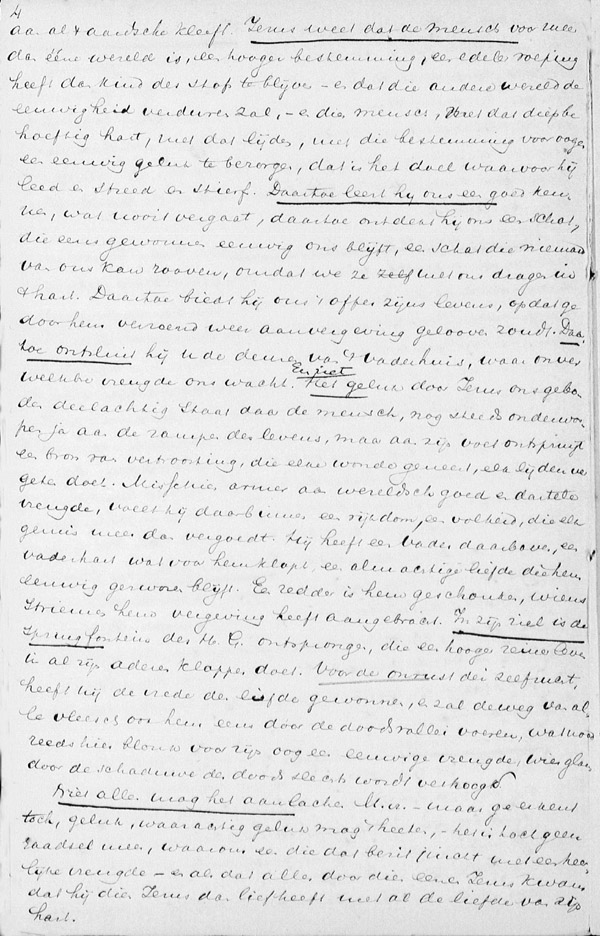 4
aan al 't aardsche kleeft. Jezus weet dat de mensch voor meer
dan ééne wereld is, een hooger bestemming, een edeler roeping
heeft dan kind des stofs te blijven – en dat die andere wereld de
eeuwigheid verduren zal, – en die mensch, met dat diepbe
hoeftig hart, met dat lijden, met die bestemming voor oogen
een eeuwig geluk te bezorgen, dat is het doel waarvoor hij
leed en streed en stierf. Daartoe leert hij ons een goed ken
nen, wat nooit vergaat, daartoe ontdekt hij ons een schat,
die eens gewonnen eeuwig ons blijft, een schat die niemand
van ons kan rooven, omdat we ze zelf met ons dragen in
't hart. Daartoe biedt hij ons 't offer zijns levens, opdat ge
door hem verzoend weer aan vergeving gelooven zoudt. Daar
toe ontsluit hij u de deuren van 't vaderhuis, waar onver
welkbre vreugde ons wacht. En ziet
Het geluk door Jezus ons gebo-
den deelachtig staat daar de mensch, nog steeds onderwor-
pen ja aan de rampen des levens, maar aan zijn voet ontspringt
een bron van vertroosting, die elke wonde geneest, elk lijden ver
geten doet. Misschien armer aan wereldsch goed en dartele
vreugde, voelt hij daarbinnen een rijkdom, een volheid, die elk
gemis meer dan vergoedt. Hij heeft een Vader daarboven, een
vaderhart wat voor hem klopt, een almachtige liefde die hem
eeuwig gezworen blijft. Een redder is hem geschonken, wiens
striemen hem vergeving heeft aangebracht. In zijn ziel is de
springfontein des H. G. ontsprongen, die een hooger reiner leven
in al zijn aderen kloppen doet. Voor de onrust der zelfzucht,
heeft hij de vrede der liefde gewonnen, en zal de weg van al-
le vleesch ook hem eens door de doodsvallei voeren, wat nood
reeds hier blonk voor zijn oog een eeuwige vreugde, wier glans
door de schaduwe des doods slechts wordt verhoogd.
Niet allen mag het aanlachen M. v. – maar ge erkent
toch, geluk, waarachtig geluk mag 't heeten, – het is toch geen
raadsel meer, waarom een die dat bezit juicht met een hee-
lijke vreugde – en als dat alles door die eenen Jezus kwam
dat hij dien Jezus dan liefheeft met al de liefde van zijn
hart.